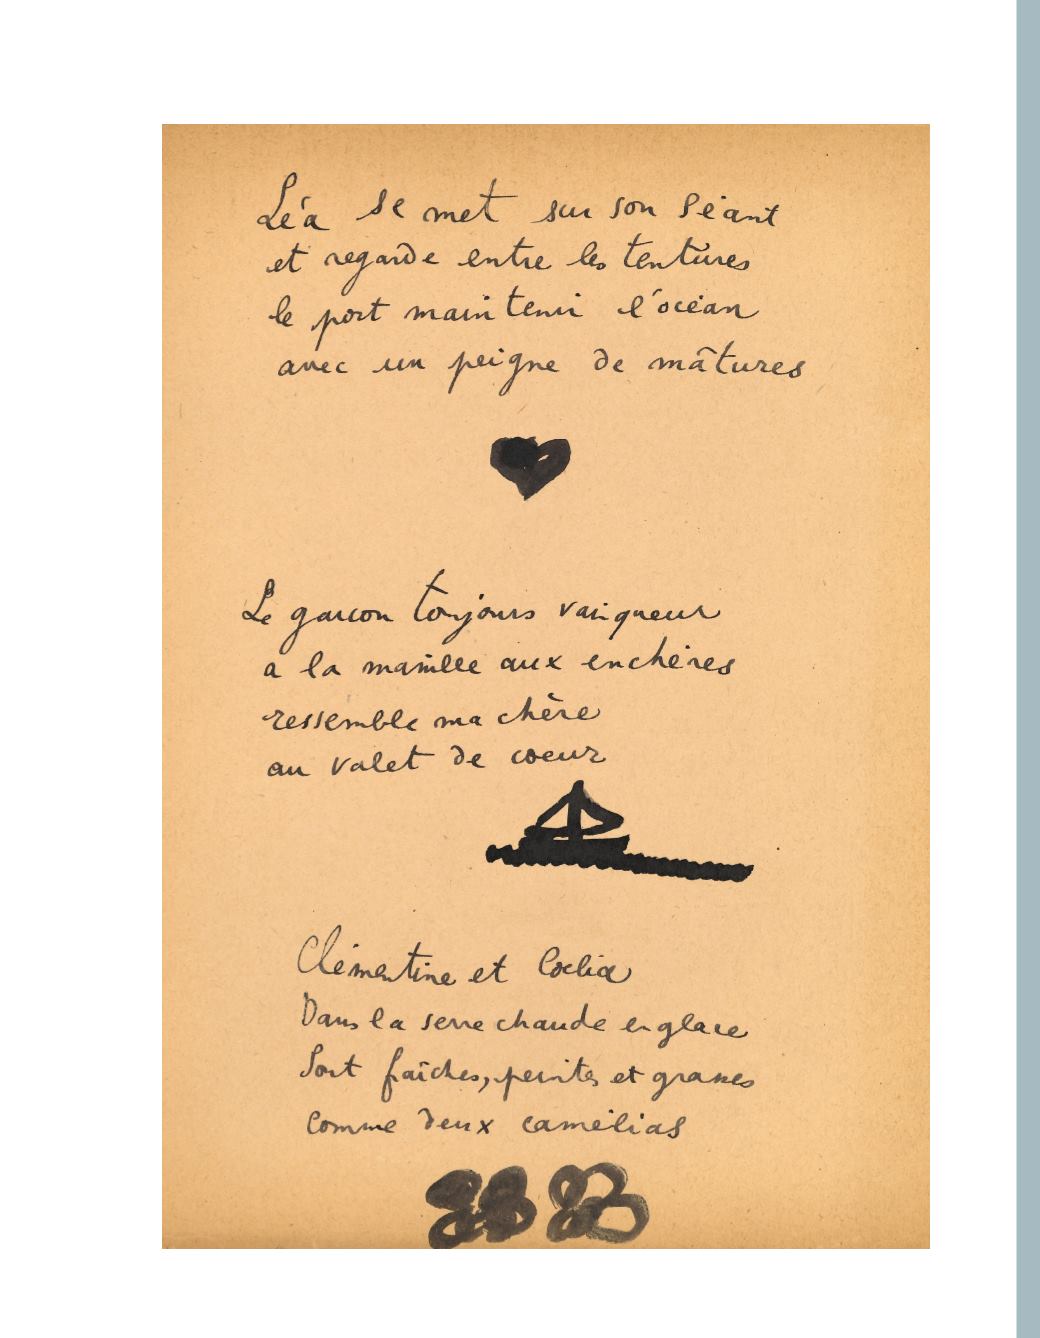 Léa se met sur son séant
et regarde entre les tentures
le port maintenir l'océan
avec un peigne de mâtures
Le garcon toujours vainqueur
a la manille aux enchères
ressemble ma chère
au valet de coeur
Clémentine et Coelia
Dans la serre chaude en glace
Sont fraîches, peintes et grasses
comme deux camélias